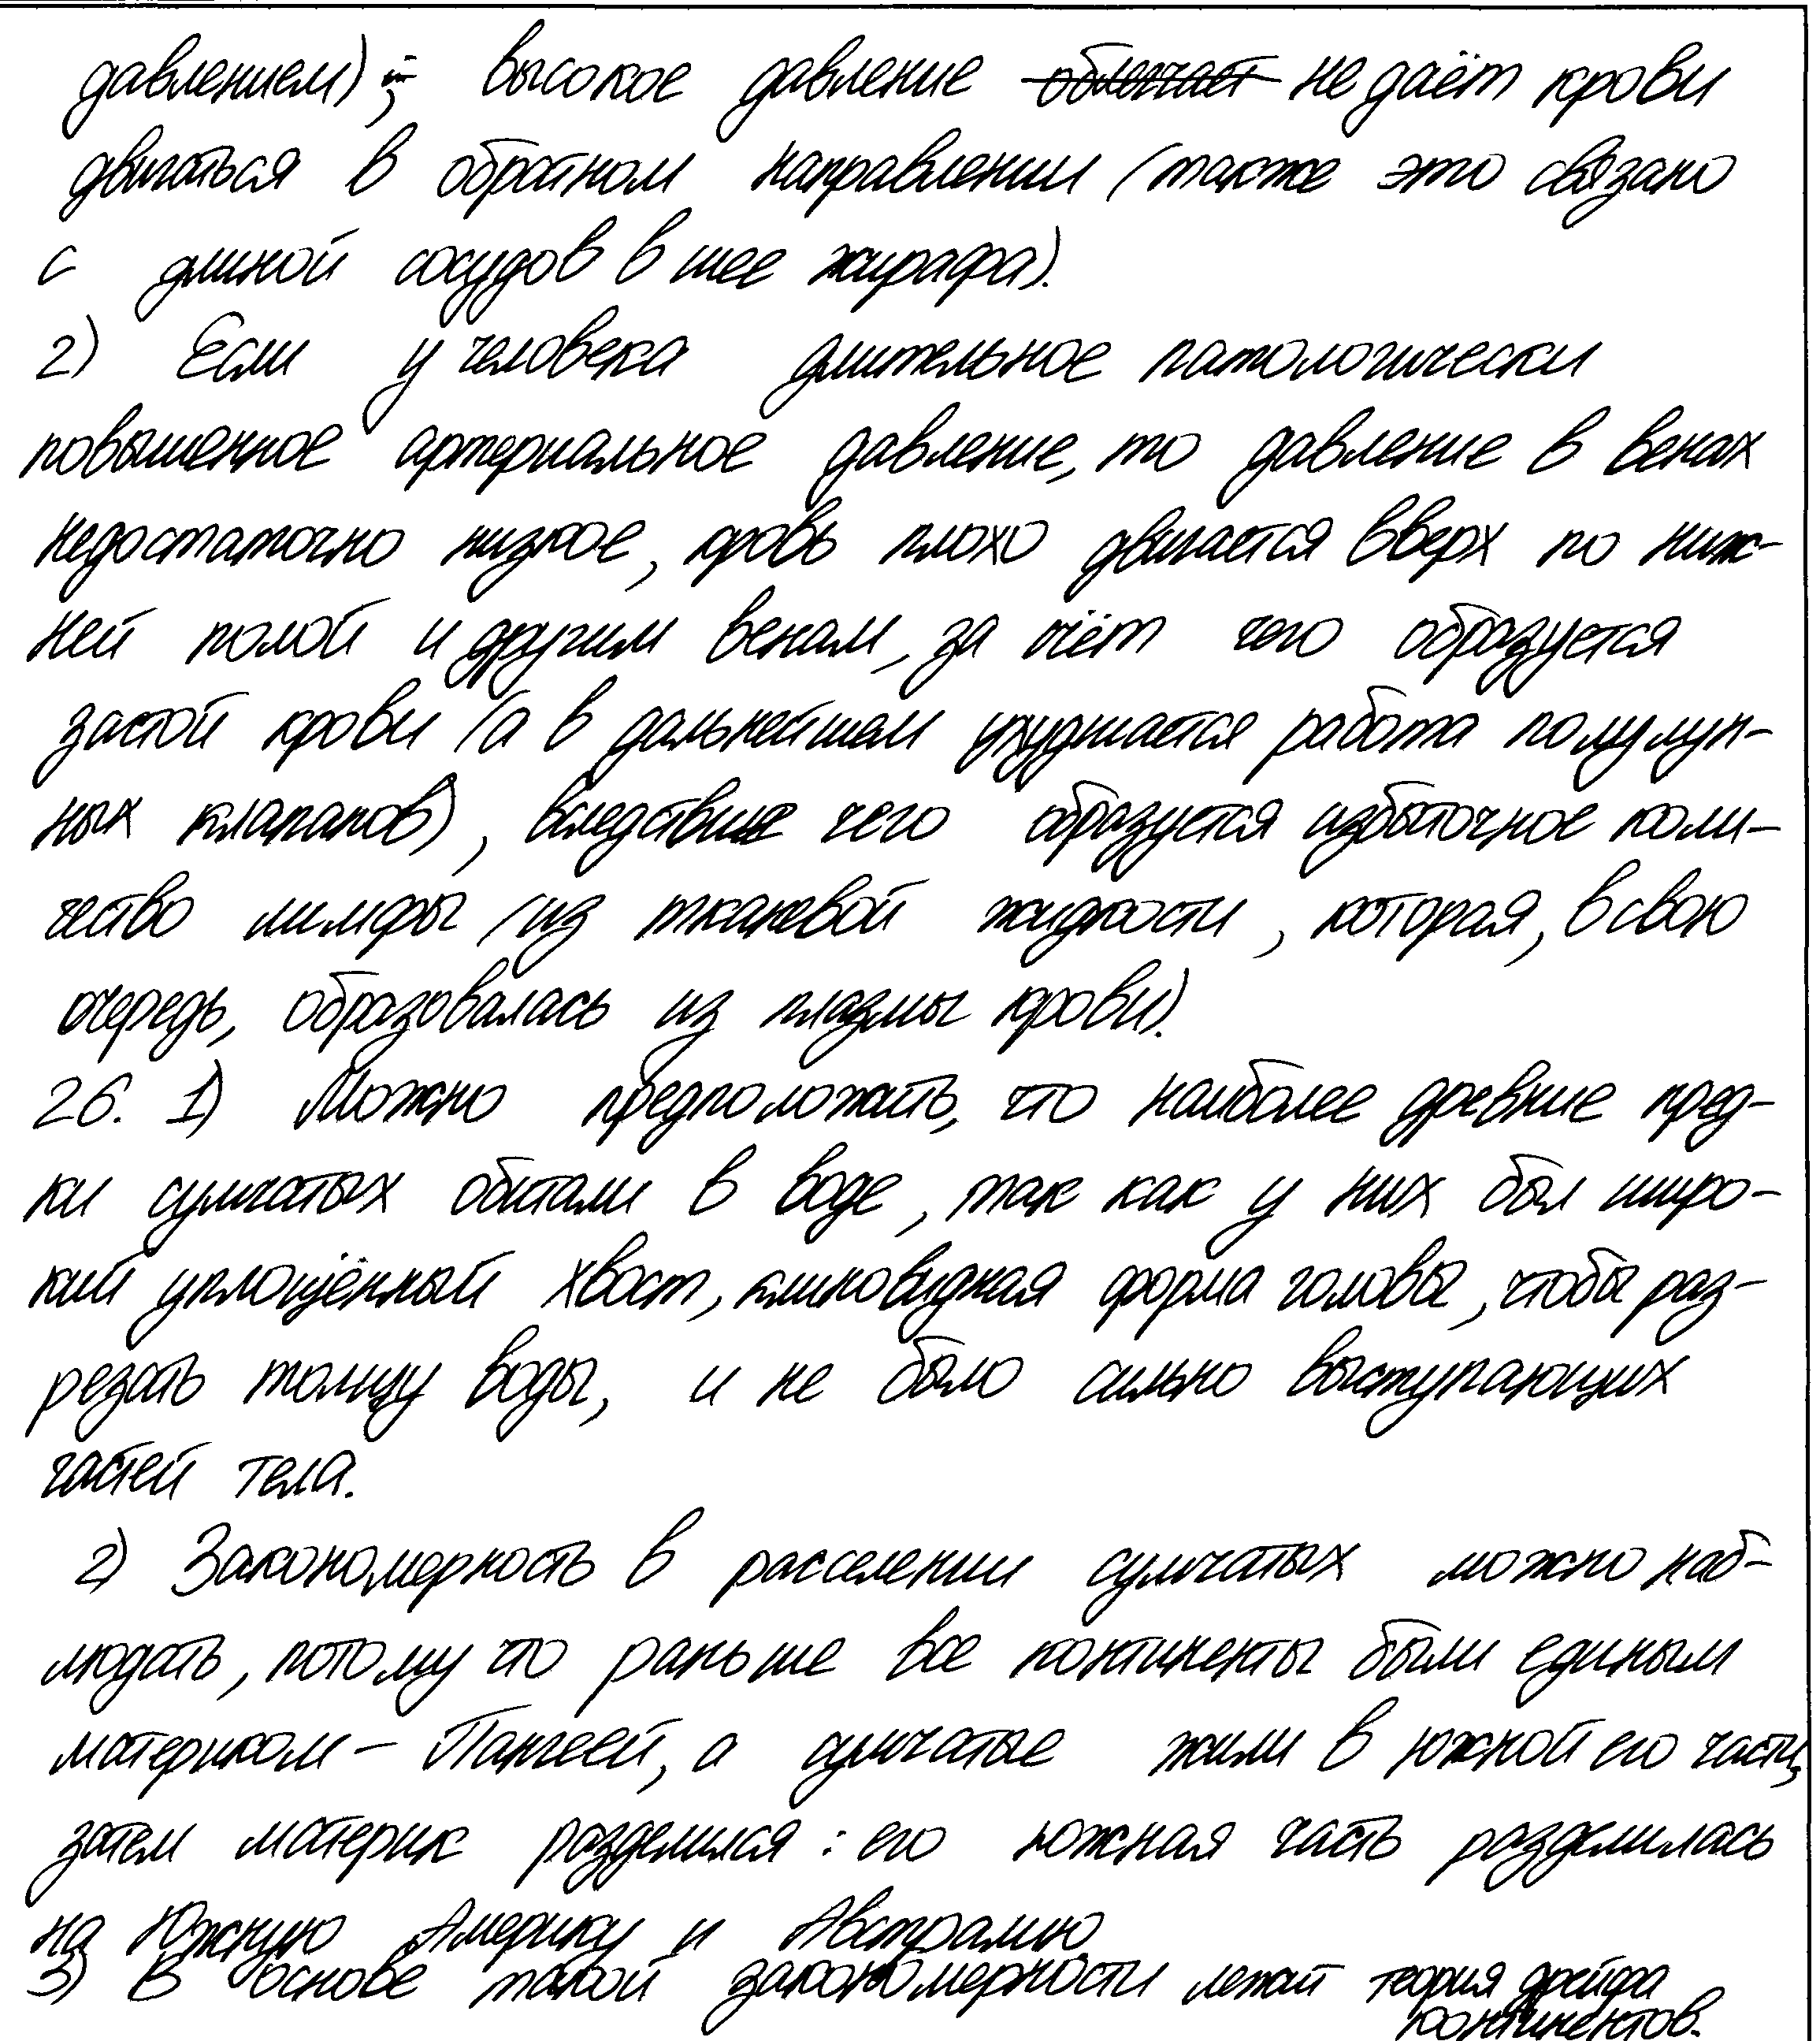 давлением); высокое давление облегчает не даёт крови
двигаться в обратном направлении (также это связано
с длиной сосудов в шее жирафа).
2) Если у человека длительное патологически
повышенное артериальное давление, то давление в венах
недостаточно низкое, кровь плохо двигается вверх по ниж-
ней полой и другим венам, за счёт чего образуется
застой крови (а в дальнейшем ухудшается работа полулун-
ных клапанов), вследствие чего образуется избыточное коли-
чество лимфы (из тканевой жидкости, которая, в свою
очередь, образовалась из плазмы крови).
26. 1) Можно предположить, что наиболее древние пред-
ки сумчатых обитали в воде, так как у них был широ-
кий уплощённый хвост, клиновидная форма головы, чтобы раз-
резать толщу воды, и не было сильно выступающих
частей тела.
2) Закономерность в расселении сумчатых можно наб-
людать, потому что раньше все континенты были единым
материком - Пангеей, а сумчатые жили в южной его части,
затем материк разделился: его южная часть разделилась
на Южную Америку и Австралию.
3) В основе такой закономерности лежит теория дрейфа
континентов.